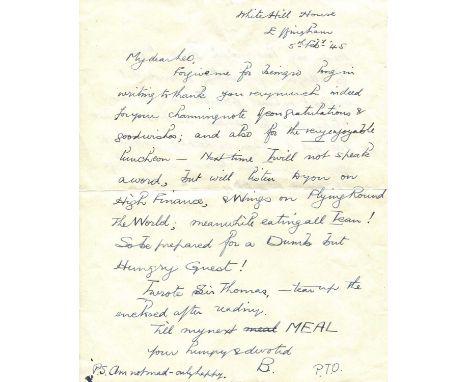 White Hill House
Effingham
5th Feb: 45
My dear Leo,
Forgive me for being so long in
writing to thank you very much indeed
for your charming note of congratulations &
goodwishes; and also for the very enjoyable
luncheon — Next time I will not speak
a word, but will listen to you on
High Finance, & Wings on Flying Round
The World; meanwhile eating all I can!
So be prepared for a Dumb but
Hungry Guest!
I wrote Sir Thomas, — tear up the
enclosed after reading.
Till my next meal MEAL
your hungry & devoted
B.
P.T.O.
P.S. Am not mad - only happy.